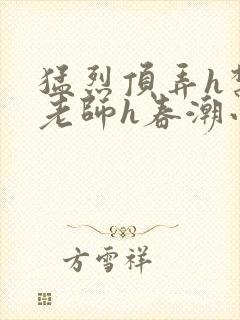 猛烈頂弄h
老師h春潮
方雪祥